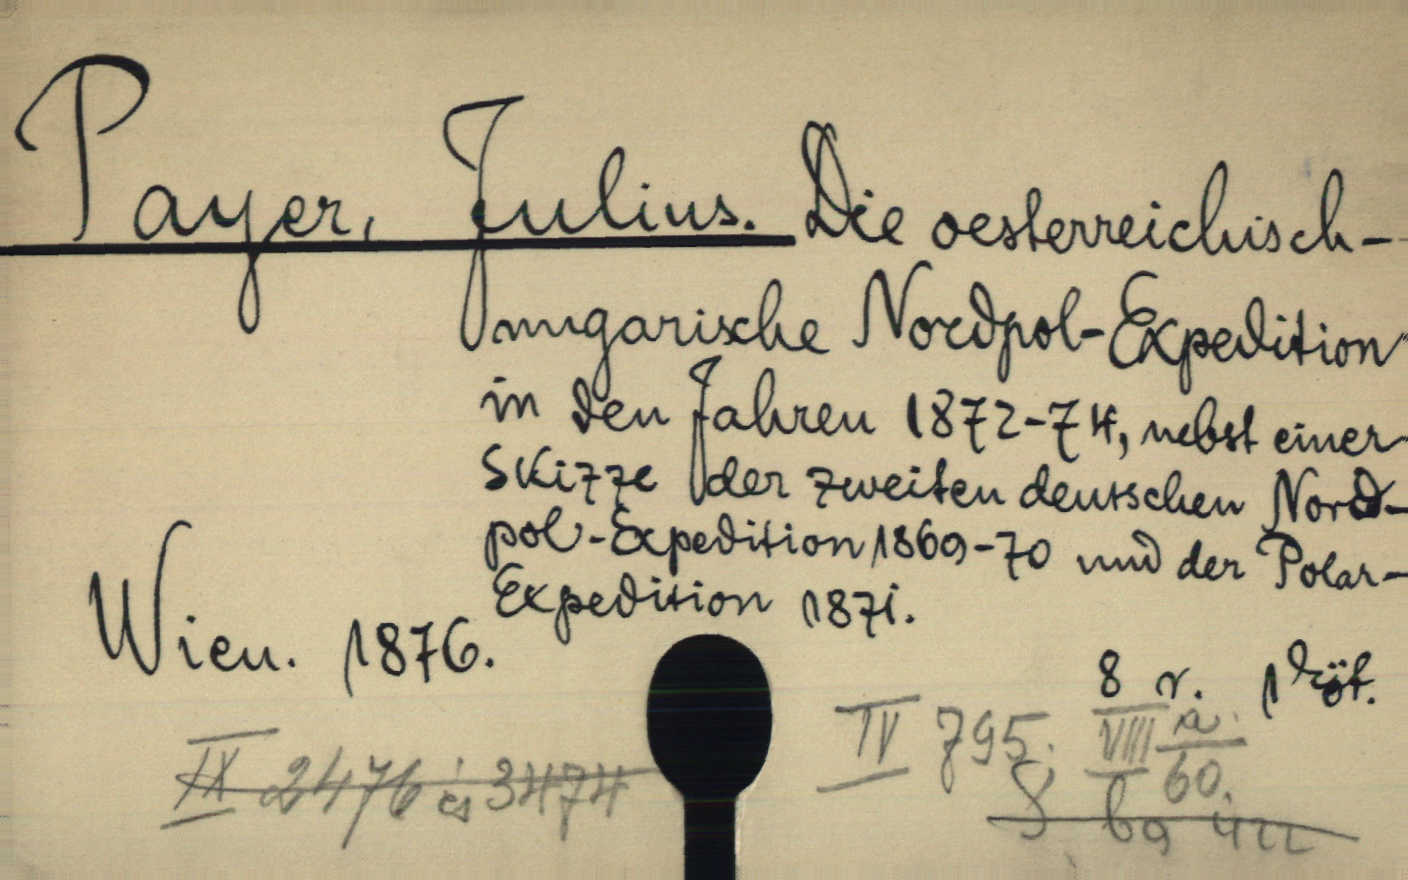 Payer, Julius. Die oesterreichisch-
ungarische Nordpol-Expedition
in den Jahren 1872-74, nebst einer
Skizze der zweiten deutschen Nord-
pol-Expedition 1869-70 und der Polar-
Expedition 1871.
Wien. 1876.
8 r. 1 köt.
IV 795. VIII a. 60.
IX 2476 és 3474